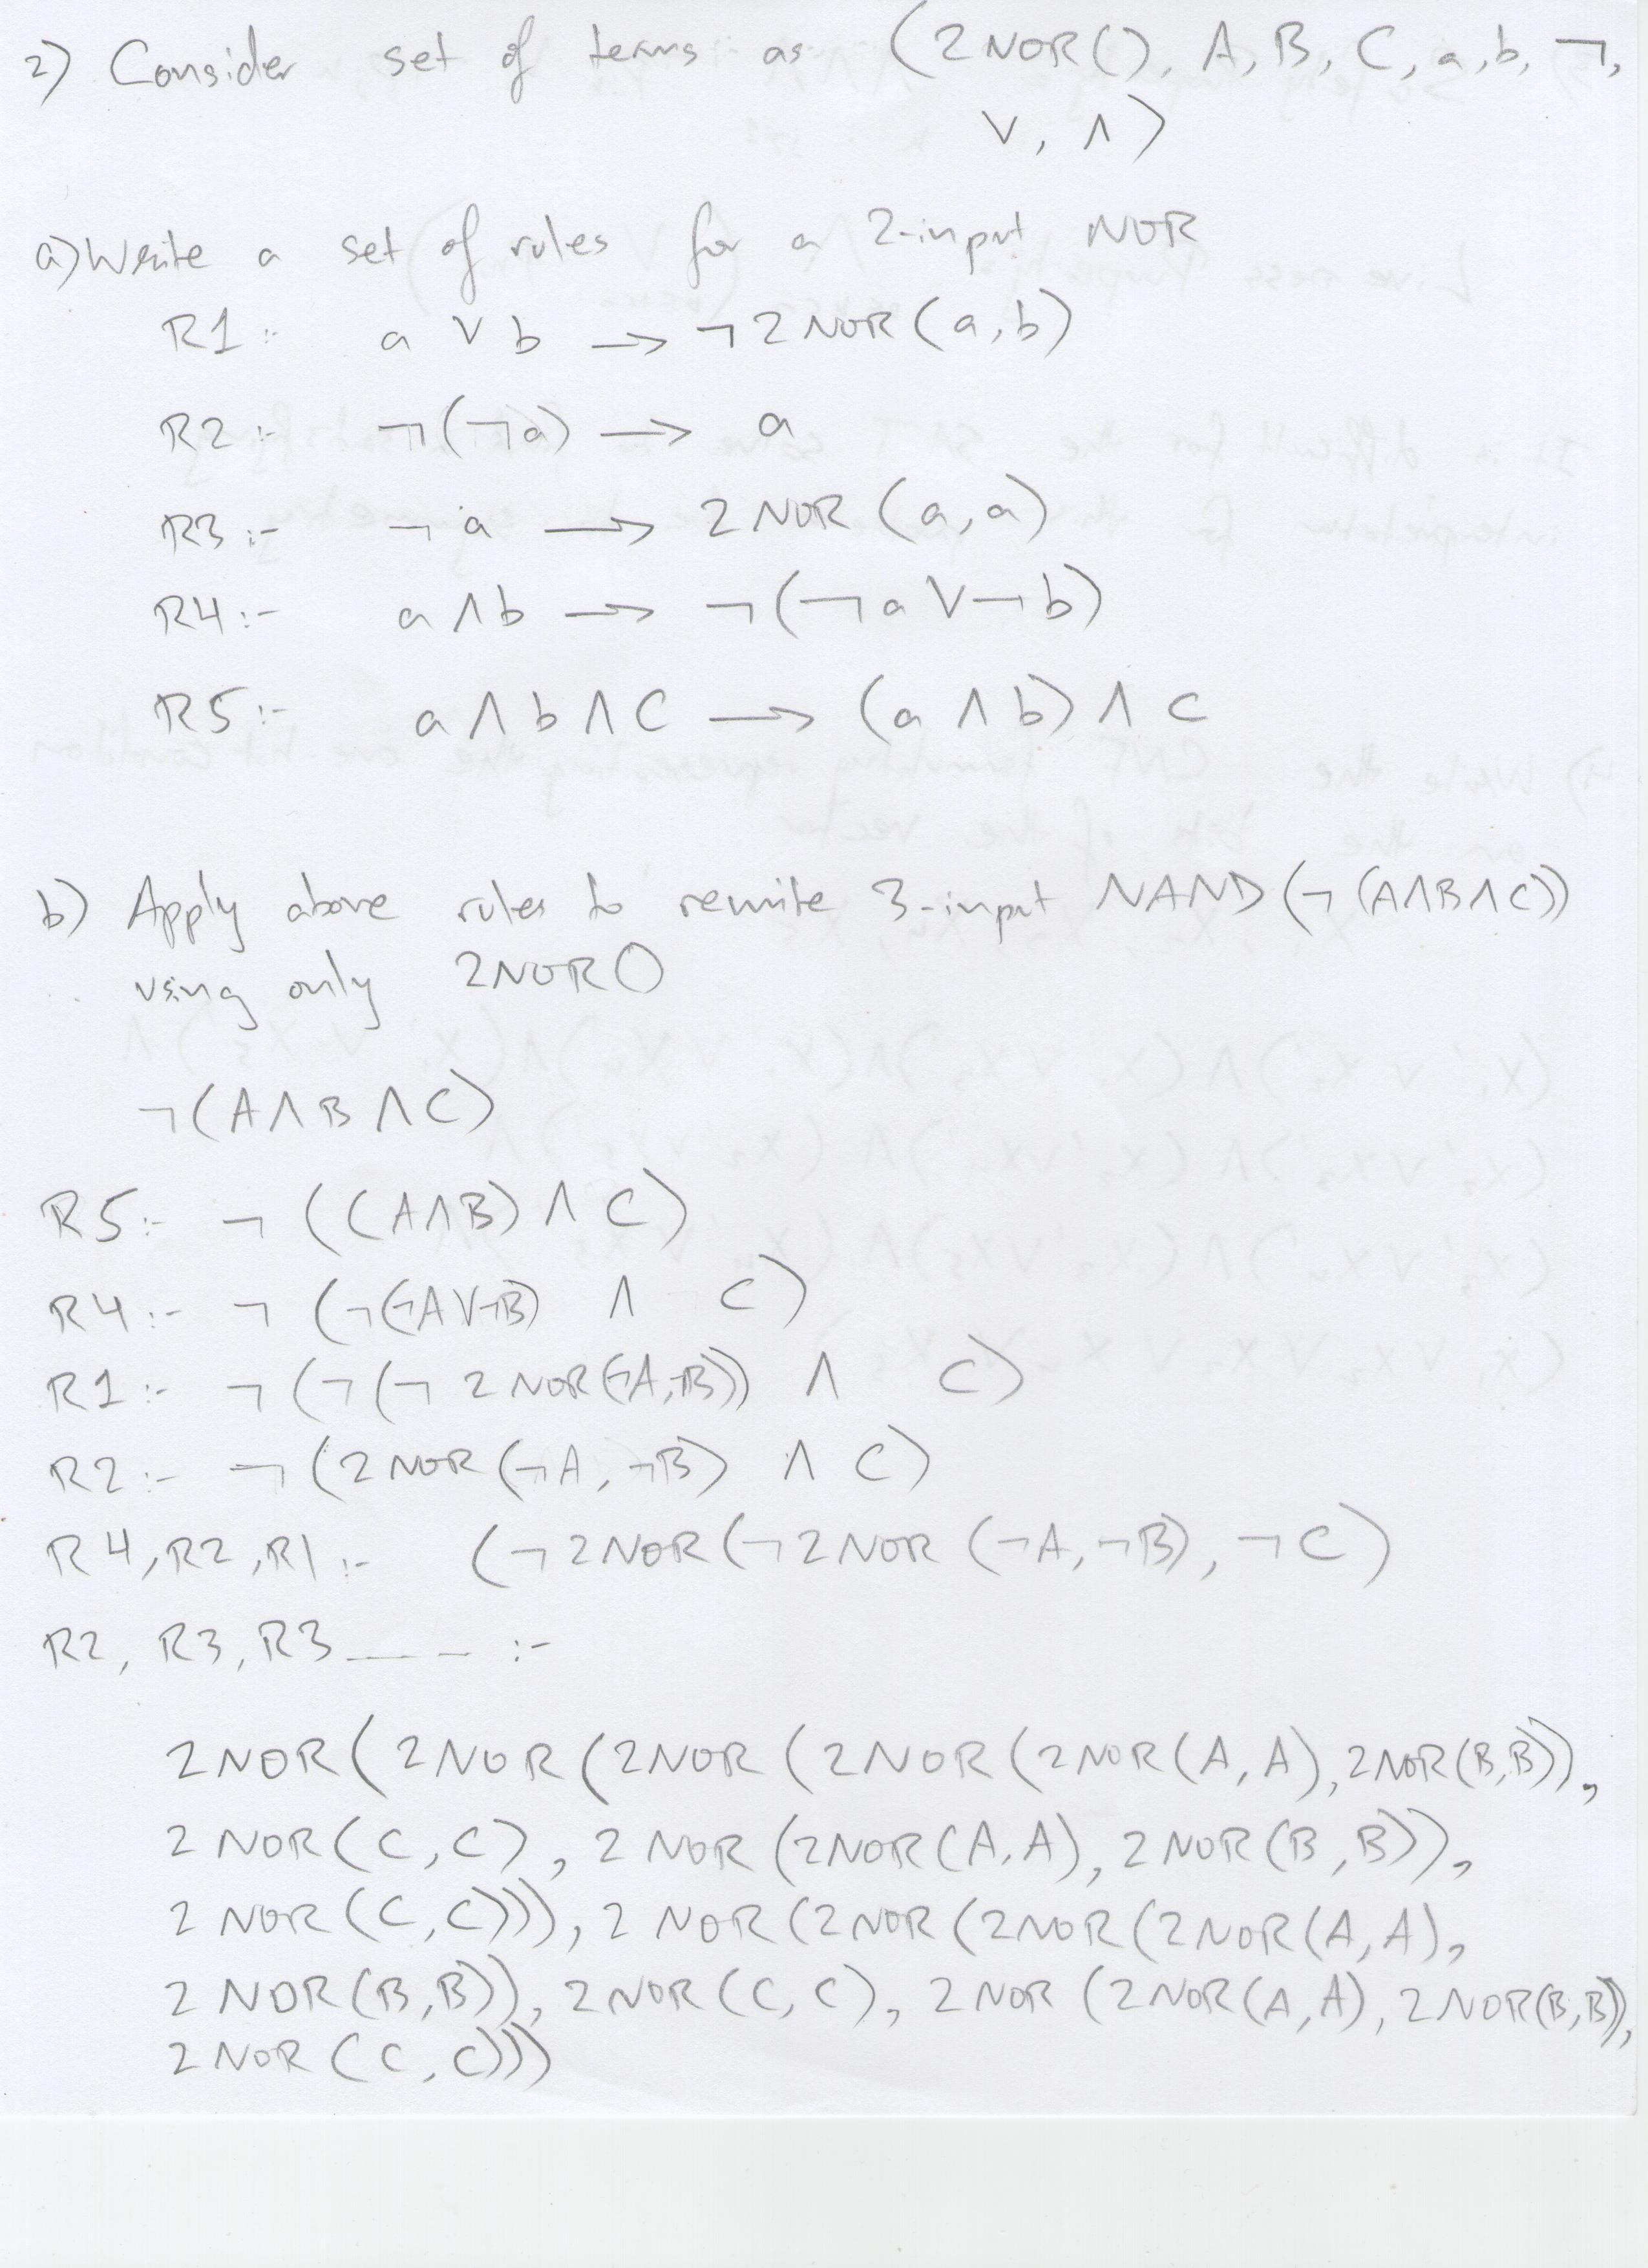 2) Consider set of terms as (2NOR(), A, B, C, a, b, ¬,
∨, ∧)
a) Write a set of rules for a 2-input NOR
R1:- a ∨ b → ¬2NOR(a,b)
R2:- ¬(¬a) → a
R3:- ¬a → 2NOR(a,a)
R4:- a ∧ b → ¬(¬a ∨ ¬b)
R5:- a ∧ b ∧ C → (a ∧ b) ∧ C
b) Apply above rules to rewrite 3-input NAND(¬(A∧B∧C))
using only 2NOR()
¬(A∧B∧C)
R5:- ¬((A∧B)∧C)
R4:- ¬(¬(¬A∨¬B) ∧ C)
R1:- ¬(¬(¬2NOR(¬A,¬B)) ∧ C)
R2:- ¬(2NOR(¬A,¬B) ∧ C)
R4,R2,R1:- (¬2NOR(¬2NOR(¬A,¬B),¬C)
R2, R3, R3 _ _ _ :-
2NOR(2NOR(2NOR(2NOR(2NOR(A,A),2NOR(B,B)),
2NOR(C,C), 2NOR(2NOR(A,A),2NOR(B,B)),
2NOR(C,C))),2NOR(2NOR(2NOR(2NOR(A,A),
2NOR(B,B)),2NOR(C,C),2NOR(2NOR(A,A),2NOR(B,B)),
2NOR(C,C)))